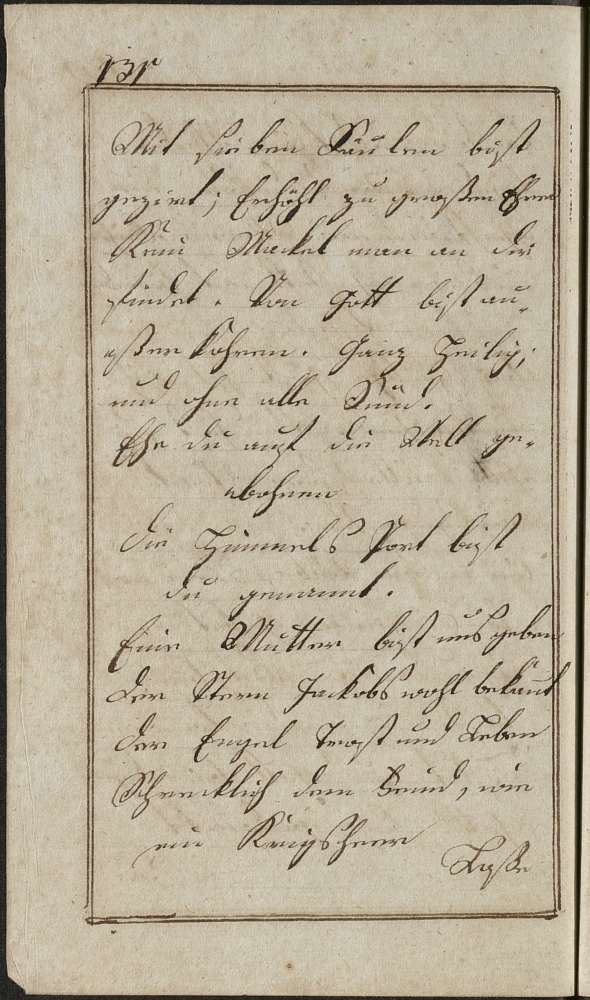 131
Mit sieben Säulen bist
geziert; Erhöht zu großen Ehren
Kein Mackel man an dir
findet. Von Gott bist au-
ßer kohren. Ganz Heilig;
und ohne alle Sünd.
Ehe du auf die Welt ge-
bohren
Die Himmels Port bist
du genannt.
Eine Mutter bist uns geben
Der Stern Jackobs wohl bekannt
Der Engel Trost und Leben
Schrecklich dem Feind, wie
ein Krigsheer
Laße